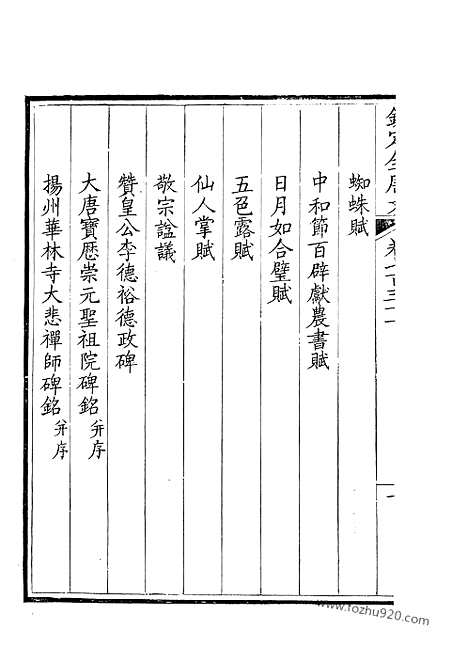 欽定全唐文 卷七百三十一 一
蜘蛛賦
中和節百辟獻農書賦
日月如合璧賦
五色露賦
仙人掌賦
敬宗諡議
贊皇公李德裕德政碑
大唐寶歷崇元聖祖院碑銘并序
揚州華林寺大悲禪師碑銘并序
www.fozhu920.com